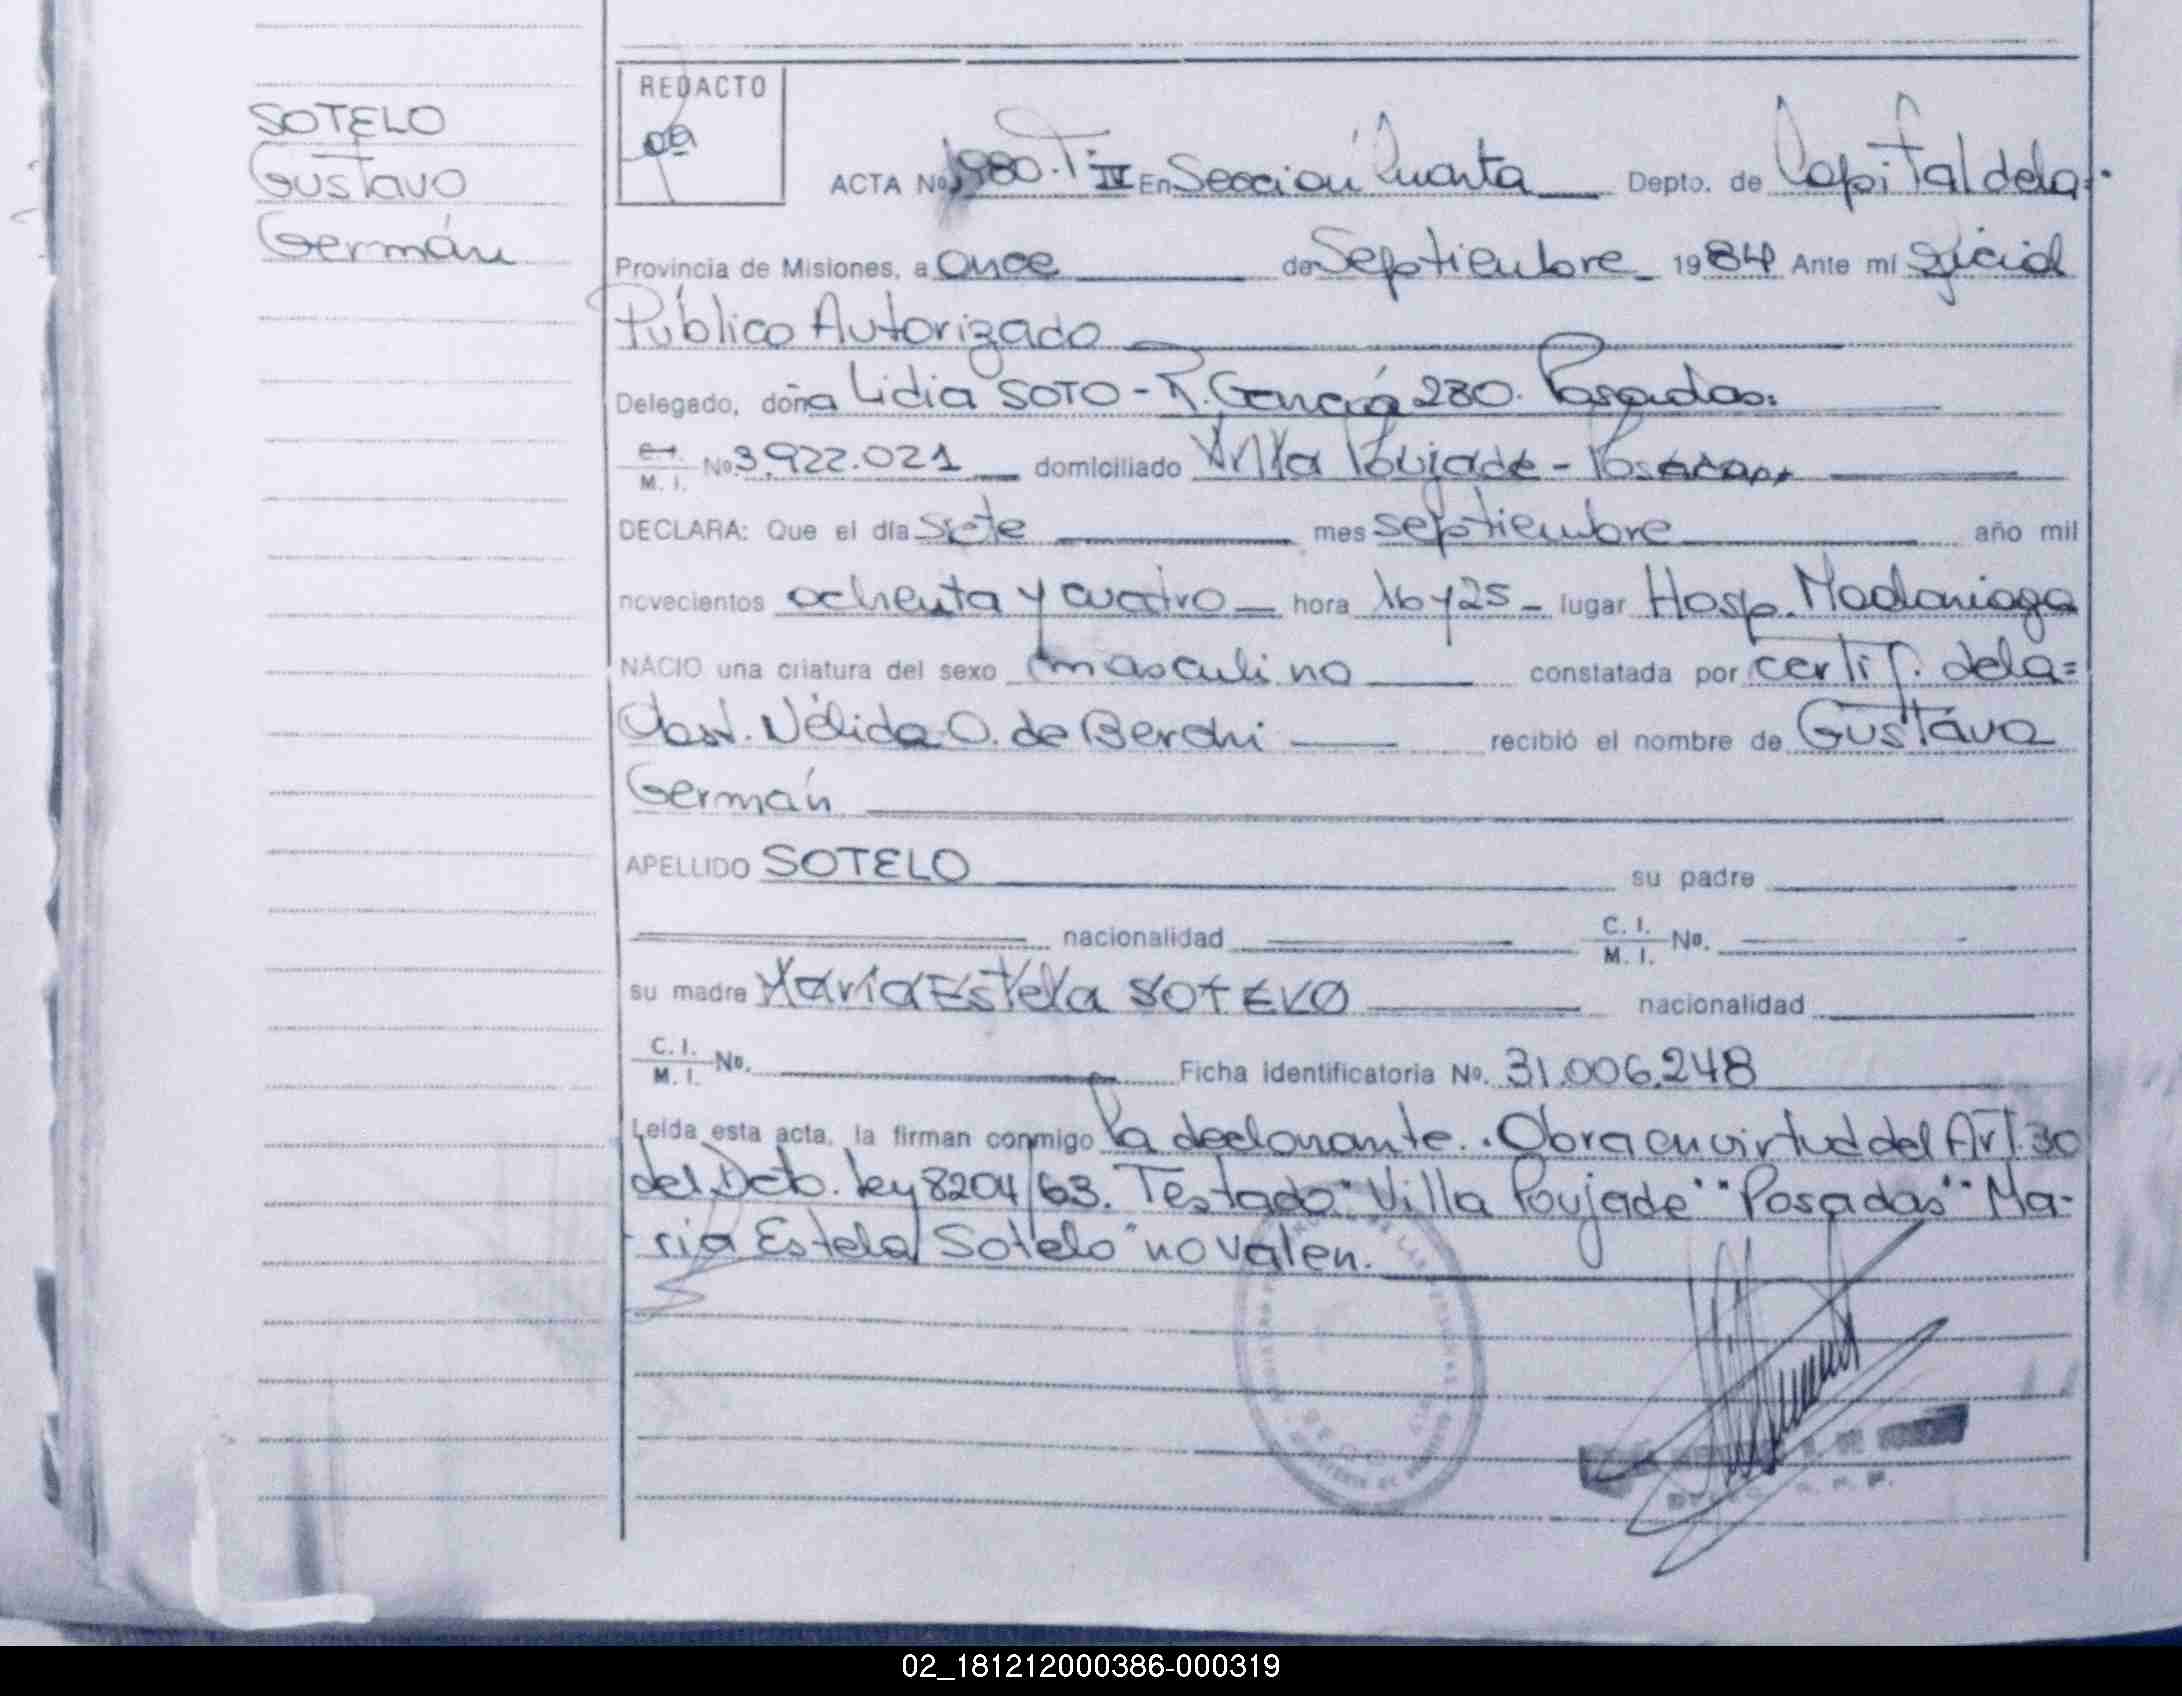 SOTELO
Gustavo
Germán
REDACTO
ACTA No 1980. T: IV En Sección Cuarta Depto. de Capital de la
Provincia de Misiones, a once de Septiembre 1984 Ante mí Oficial
Público Autorizado
Delegado, doña Lidia SOTO - R. García 280. Posadas.
C.I. M. I. No 3.922.021 domiciliado Villa Poujade - Posadas,
DECLARA: Que el día siete mes septiembre año mil
novecientos ochenta y cuatro hora 16 y 25 lugar Hosp. Madariaga
NACIO una criatura del sexo masculino constatada por certif. de la=
Obst. Nélida O. de Berchi recibió el nombre de Gustavo
Germán
APELLIDO SOTELO su padre
nacionalidad C. I. M. I. No.
su madre María Estela SOTELO nacionalidad
C. I. M. I. No. Ficha identificatoria No. 31.006.248
Leída esta acta, la firman conmigo la declarante. Obra en virtud del Art. 30
del Dcto. ley 8204/63. Testado "Villa Poujade" "Posadas" "Ma-
ría Estela Sotelo" no valen.
02_181212000386-000319